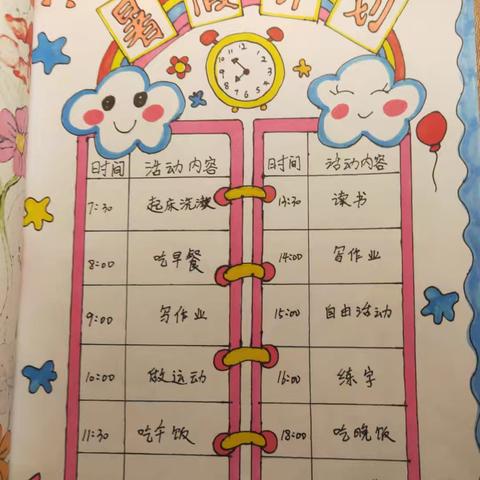 暑假计划
时间 活动内容
7:30 起床洗漱
8:00 吃早餐
9:00 写作业
10:00 做运动
11:30 吃午饭
时间 活动内容
13:30 读书
14:00 写作业
15:00 自由活动
16:00 练字
18:00 吃晚饭